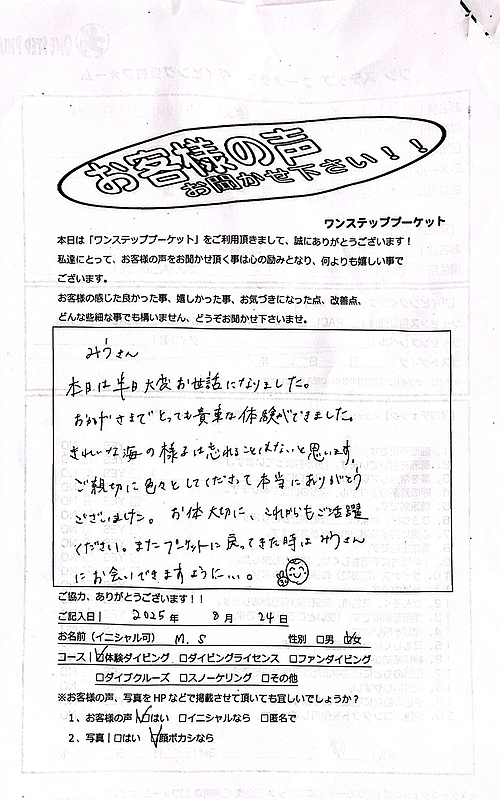 お客様の声
お聞かせ下さい！！
ワンステッププーケット
本日は「ワンステッププーケット」をご利用頂きまして、誠にありがとうございます！
私達にとって、お客様の声をお聞かせ頂く事は心の励みとなり、何よりも嬉しい事で
ございます。
お客様の感じた良かった事、嬉しかった事、お気づきになった点、改善点、
どんな些細な事でも構いません、どうぞお聞かせ下さいませ。
みうさん
本日は半日大変お世話になりました。
おかげさまでとっても貴重な体験ができました。
きれいな海の様子は忘れることはないと思います。
ご親切に色々としてくださって本当にありがとう
ございました。お体大切に、これからもご活躍
ください。またプーケットに戻ってきた時はみうさん
にお会いできますように...。
ご協力、ありがとうございます！！
ご記入日 | 2025 年 8 月 24 日
お名前（イニシャル可） M. S 性別 □男 □女
コース | □体験ダイビング □ダイビングライセンス □ファンダイビング
□ダイブクルーズ □スノーケリング □その他
※お客様の声、写真をHPなどで掲載させて頂いても宜しいでしょうか？
1、お客様の声 | □はい □イニシャルなら □匿名で
2、写真 | □はい □顔ボカシなら